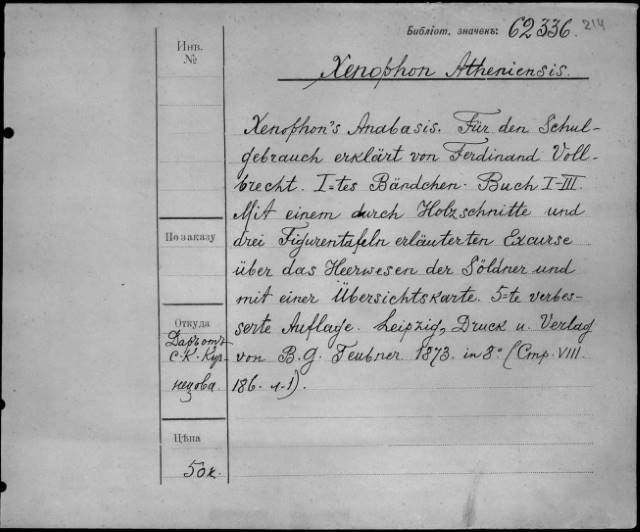 Библіот. значекъ: 62336. 214
Инв.
№
Xenophon Atheniensis.
Xenophon's Anabasis. Für den Schul-
gebrauch erklärt von Ferdinand Voll-
brecht. I=tes Bändchen. Buch I-III.
Mit einem durch Holzschnitte und
По заказу
drei Figurentafeln erläuterten Excurse
über das Heerwesen der Söldner und
mit einer Übersichtskarte. 5=te verbes-
Откуда
serte Auflage. Leipzig, Druck u. Verlag
Даръ отъ
С. К. Куз-
нецова.
von B. G. Teubner 1873. in 8° (Стр. VIII.
186. +1).
Цѣна
50к.